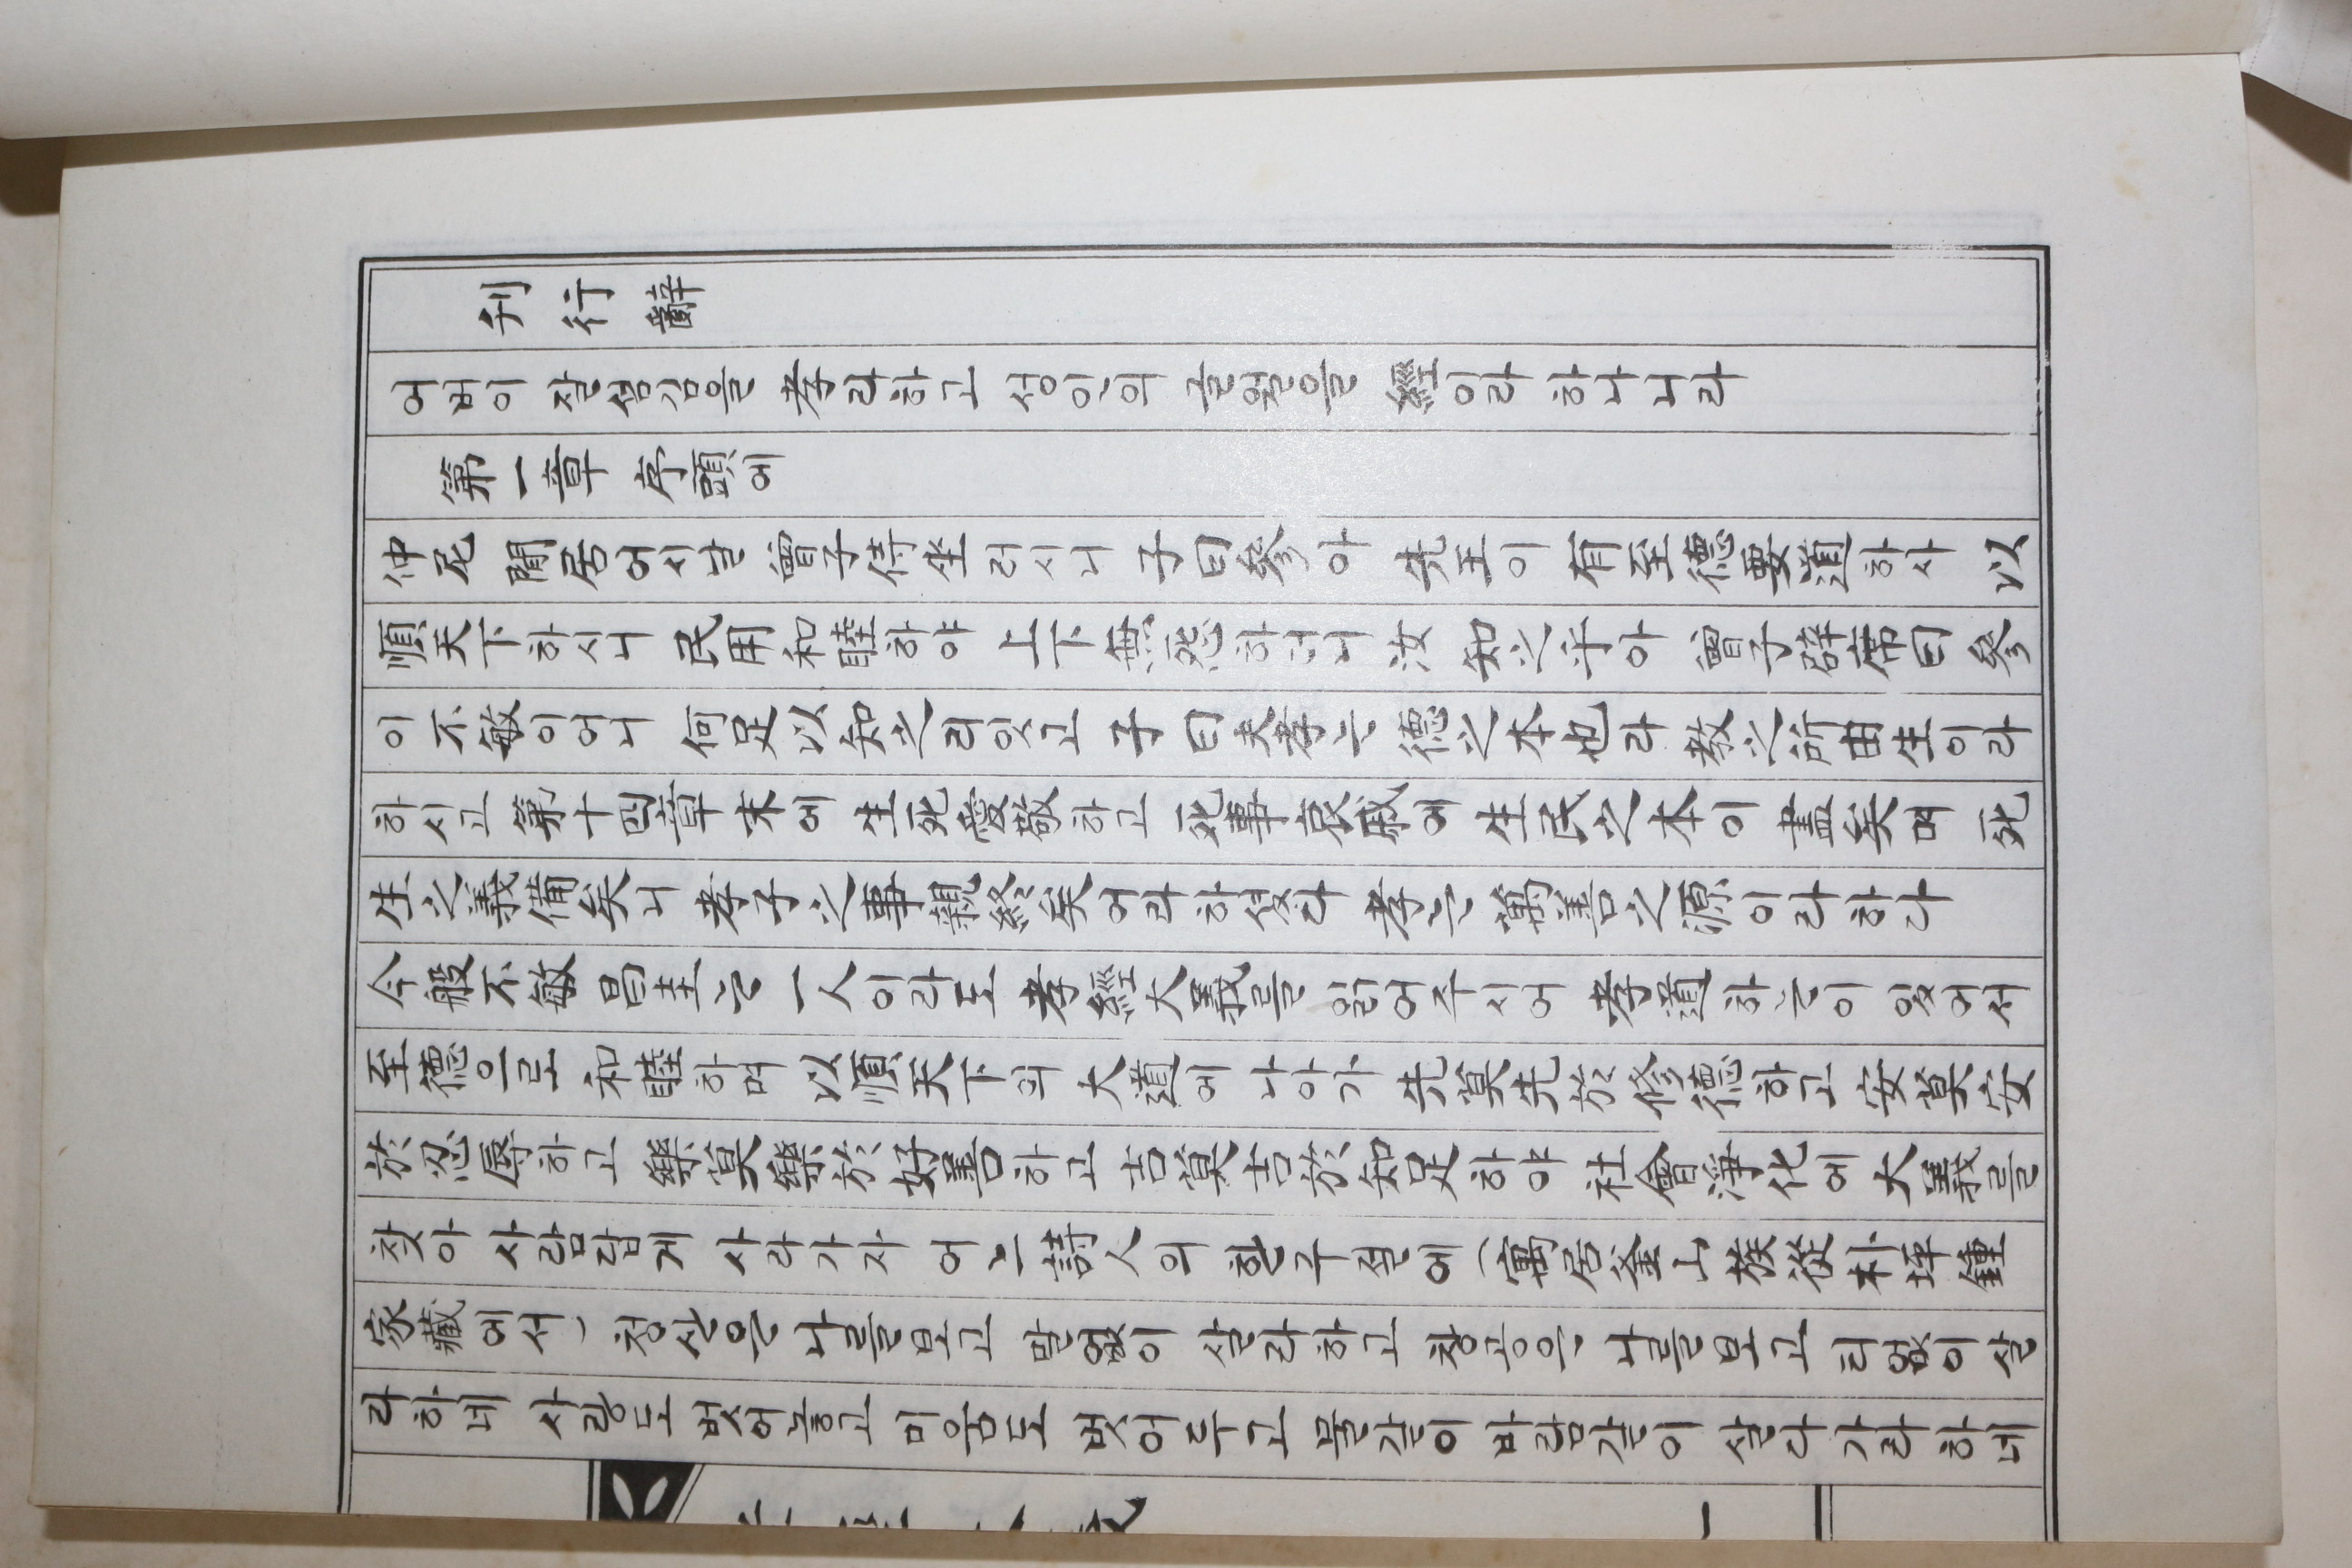 刊行辭
어버이 잘섬김을 孝라하고 성인의 글월을 經이라 하나니라
第一章 序頭에
仲尼 閒居어시날 曾子侍坐러시니 子曰參아 先王이 有至德要道하사 以
順天下하시니 民用和睦하야 上下無怨하더니 汝 知之乎아 曾子辟席曰 參
이 不敏이어니 何足以知之리잇고 子曰夫孝는 德之本也라 教之所由生이라
하시고 第十四章末에 生死愛敬하고 死事哀戚에 生民之本이 盡矣며 死
生之義備矣니 孝子之事親終矣어라하셨다 孝는 萬善之源이라하다
今般不敏 昌圭는 一人이라도 孝經大義를 읽어주시어 孝道하는이 있어서
至德으로 和睦하며 以順天下의 大道에 나아가 先莫先於修德하고 安莫安
於忍辱하고 樂莫樂於好善하고 吉莫吉於知足하야 社會淨化에 大義를
찾아 사람답게 사라가자 어느詩人의 한구절에 (寓居釜山族從朴坪鍾
家藏에서) 청산은 나를보고 말없이 살라하고 창공은 나를보고 티없이살
라하네 사랑도 벗어놓고 미움도 벗어두고 물같이 바람같이 살다가라하네
一